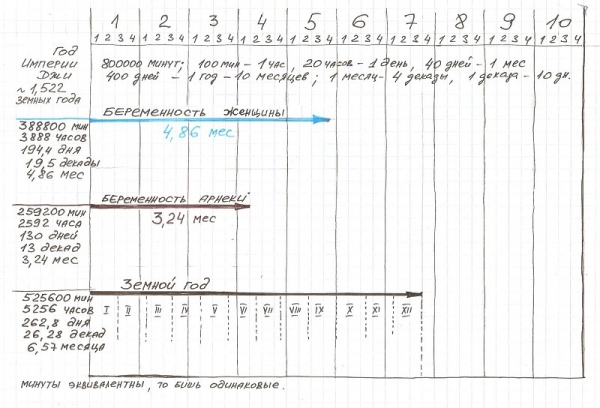 1 2 3 4 5 6 7 8 9 10
1 2 3 4 1 2 3 4 1 2 3 4 1 2 3 4 1 2 3 4 1 2 3 4 1 2 3 4 1 2 3 4 1 2 3 4 1 2 3 4
Год
Империи
Джи
~ 1,522
земных года
800000 минут; 100 мин - 1 час, 20 часов - 1 день, 40 дней - 1 мес
400 дней - 1 год - 10 месяцев; 1 месяц - 4 декады, 1 декада - 10 дн.
Беременность женщины
4,86 мес
388800 мин
3888 часов
194,4 дня
19,5 декады
4,86 мес
Беременность арнеки
3,24 мес
259200 мин
2592 часа
130 дней
13 декад
3,24 мес
Земной год
525600 мин
5256 часов
262,8 дня
26,28 декад
6,57 месяца
I II III IV V VI VII VIII IX X XI XII
минуты эквивалентны, то бишь одинаковые.